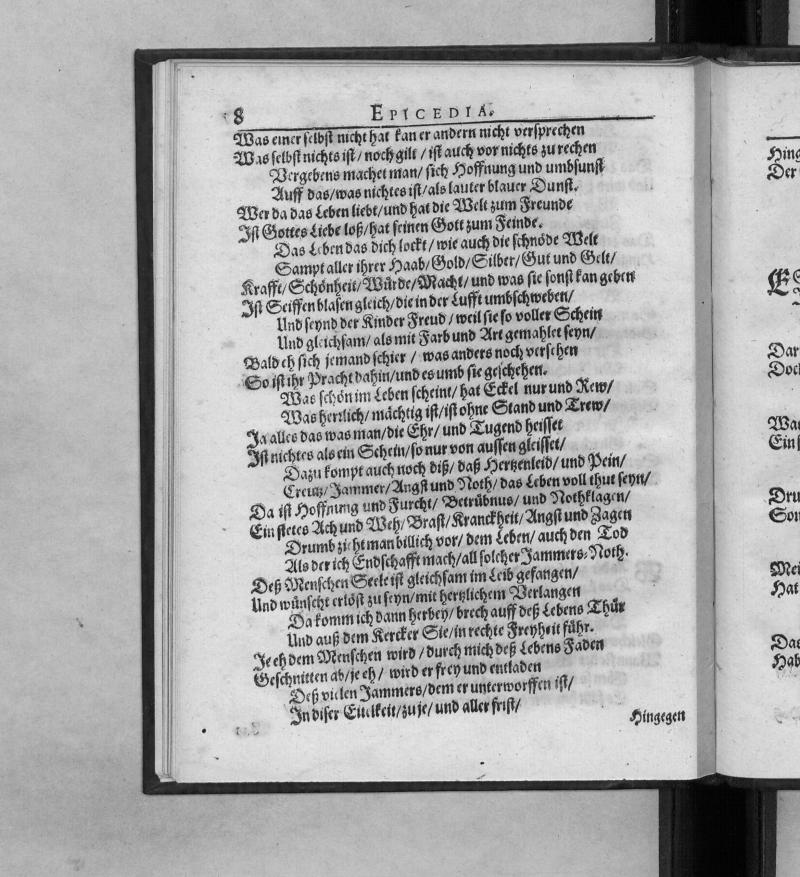 8 EPICEDIA.
Was einer selbst nicht hat kan er andern nicht versprechen
Was selbst nichts ist/ noch gilt/ ist auch vor nichts zu rechen
Vergebens machet man/ sich Hoffnung und umbsunst
Auff das/was nichtes ist/als lauter blauer Dunst.
Wer da das Leben liebt/und hat die Welt zum Freunde
Ist Gottes Liebe loß/hat seinen Gott zum Feinde.
Das Leben das dich lockt/ wie auch die schnöde Welt
Sampt aller ihrer Haab/Gold/Silber/Gut und Gelt/
Krafft/Schönheit/Würde/Macht/ und was sie sonst kan geben
Ist Seiffenblasen gleich/die in der Lufft umbschweben/
Und seynd der Kinder Freud/ weil sie so voller Schein
Und gleichsam/als mit Farb und Art gemahlet seyn/
Bald eh sich jemand schier/ was anders noch versehen
So ist ihr Pracht dahin/und es umb sie geschehen.
Was schön im Leben scheint/ hat Eckel nur und Rew/
Was herrlich/ mächtig ist/ist ohne Stand und Trew/
Ja alles das was man/die Ehr/ und Tugend heisset
Ist nichtes als ein Schein/so nur von aussen gleisset/
Dazu kompt auch noch diß/ daß Hertzenleid/ und Pein/
Creutz/Jammer/Angst und Noth/ das Leben voll thut seyn/
Da ist Hoffnung und Furcht/ Betrübnus/ und Nothklagen/
Ein stetes Ach und Weh/Brast/Kranckheit/Angst und Zagen
Drumb zieht man billich vor/ dem Leben/ auch den Tod
Als der ich Endschafft mach/all solcher Jammers-Noth.
Deß Menschen Seele ist gleichsam im Leib gefangen/
Und wünscht erlöst zu seyn/mit hertzlichem Verlangen
Da komm ich dann herbey/ brech auff deß Lebens Thür
Und auß dem Kercker Sie/in rechte Freyheit führ.
Je eh dem Menschen wird/durch mich deß Lebens Faden
Geschnitten ab/je eh/ wird er frey und entladen
Deß vielen Jammers/dem er unterworffen ist/
In diser Eitelkeit/zu je/ und aller frist/
Hingegen
Hing
Der
Dar
Doch
Wau
Ein s
Dru
Son
Mei
Hat
Das
Hab